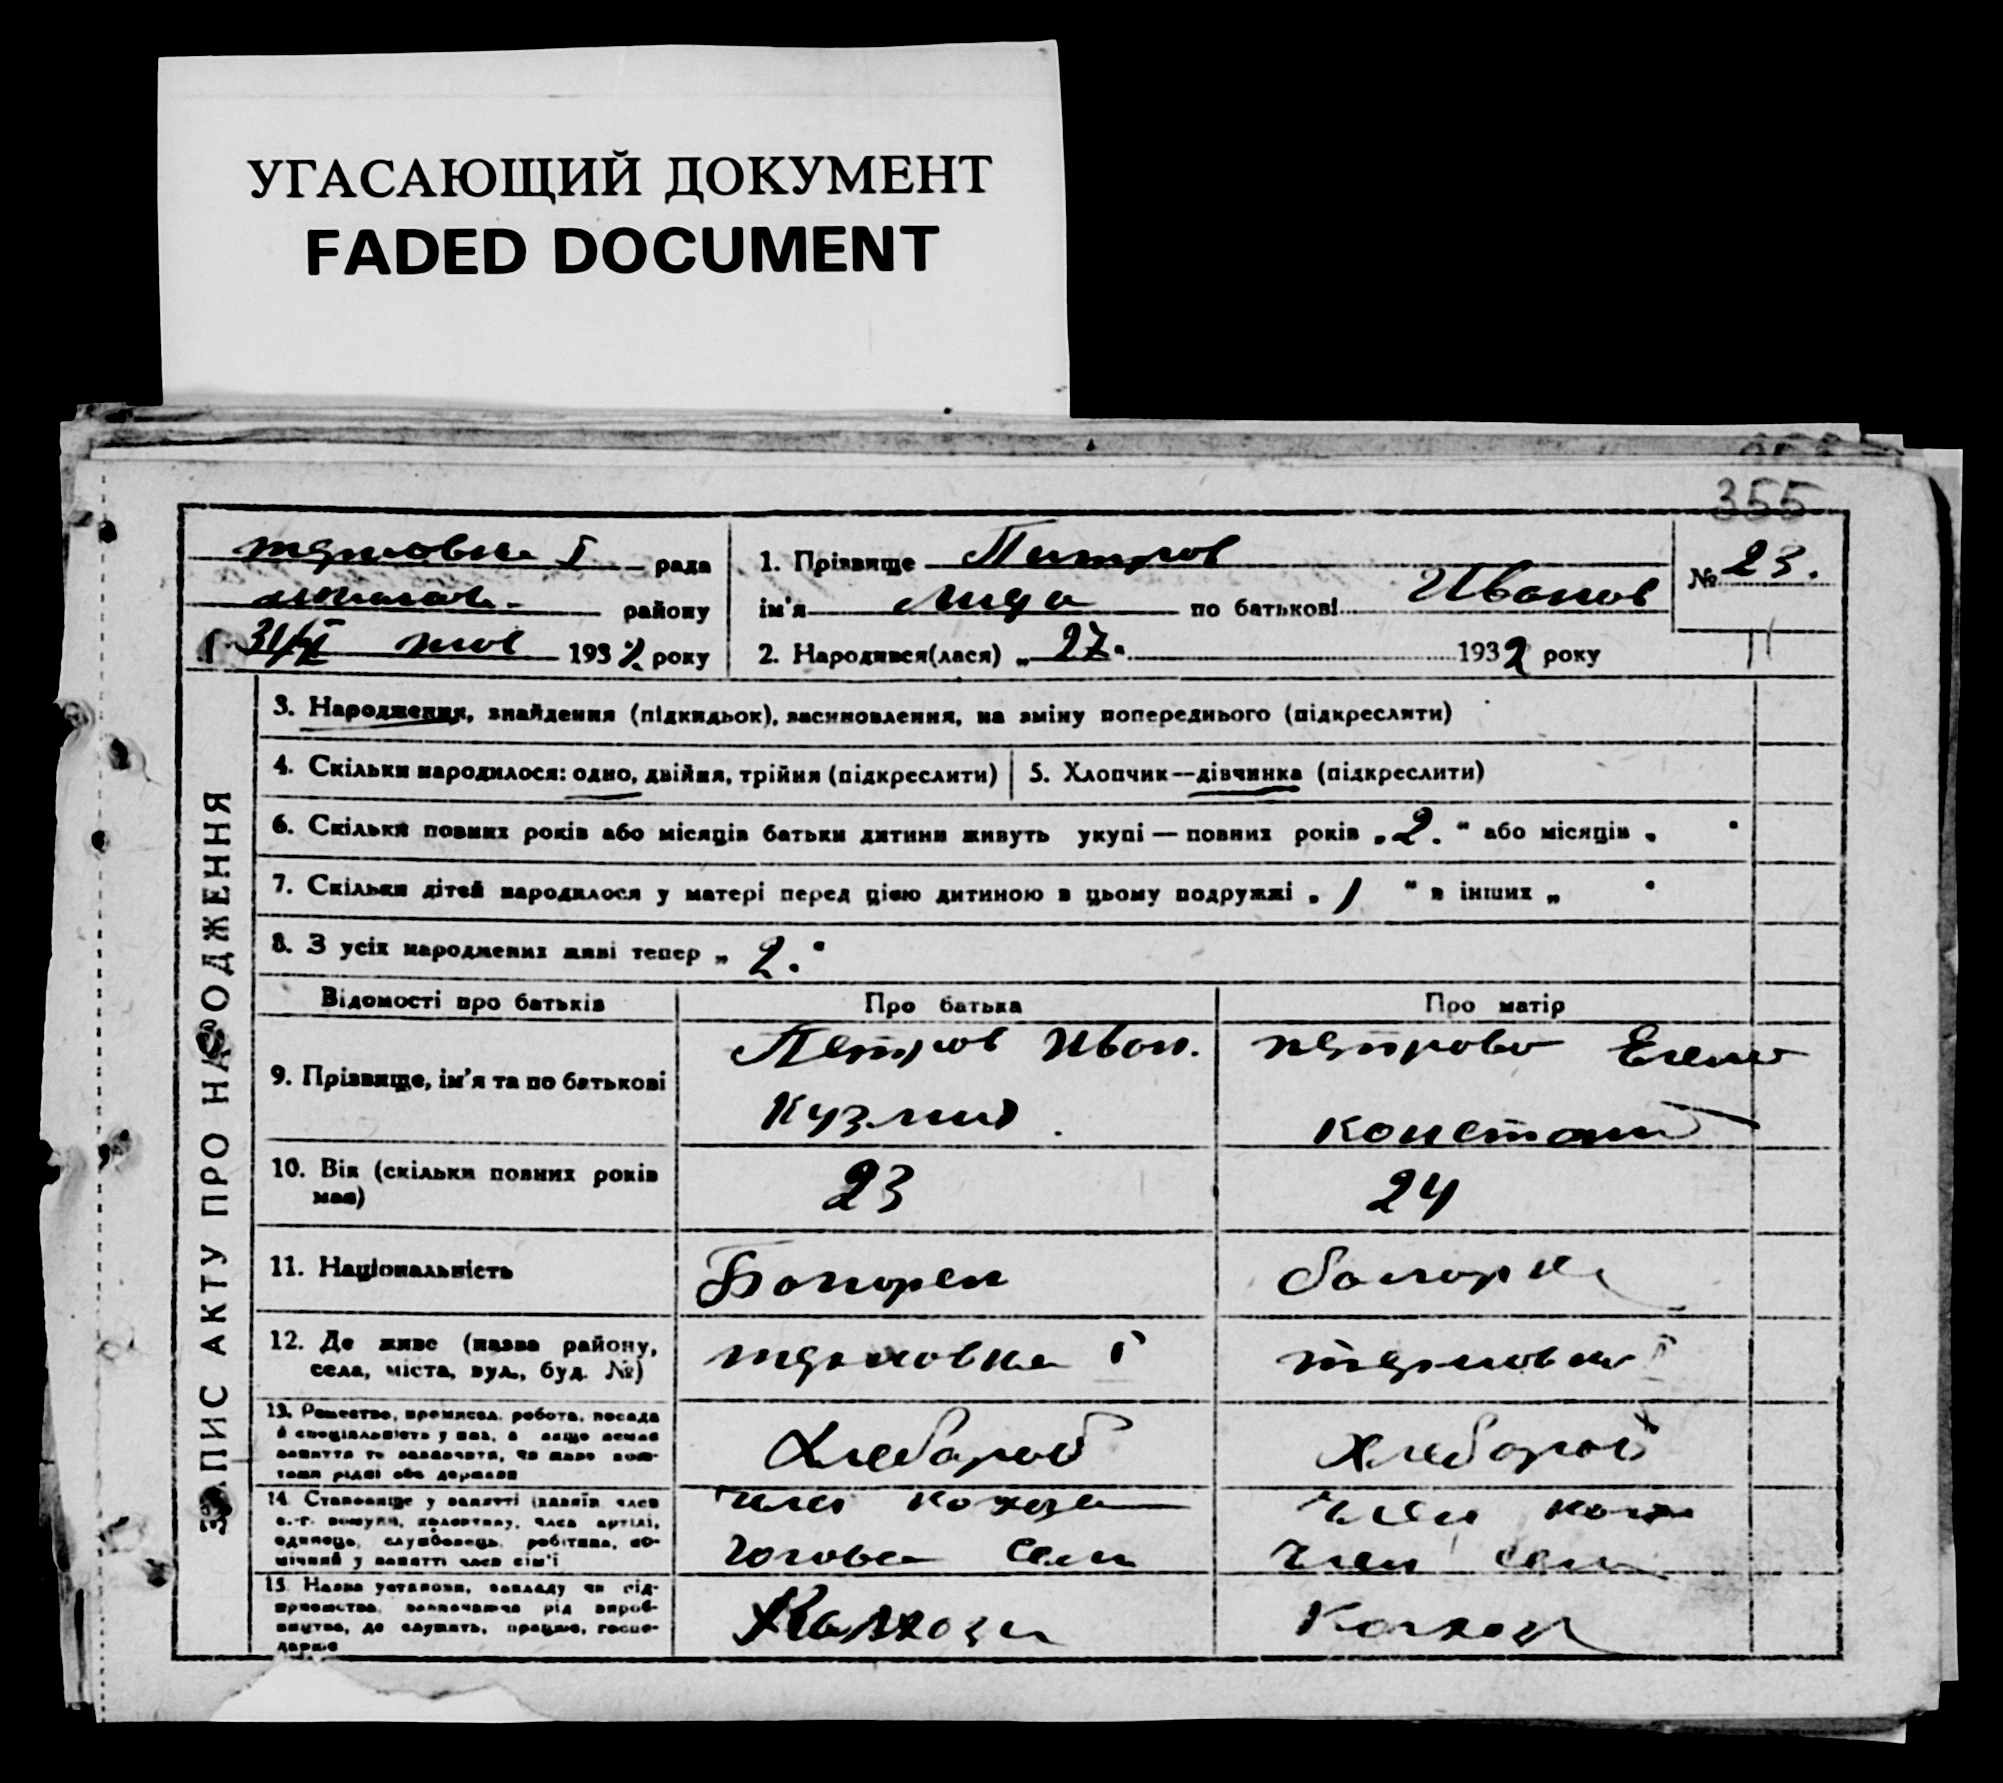 УГАСАЮЩИЙ ДОКУМЕНТ
FADED DOCUMENT
355
ЗАПИС АКТУ ПРО НАРОДЖЕННЯ
терновка I рада
району
31/VII 1932 року
1. Прізвище Питров
ім'я Лида по батькові Иванов
2. Народився(лася) „27" 1932 року
№ 23.
3. Народження, знайдення (підкидьок), васиновлення, на зміну попереднього (підкреслити)
4. Скільки народилося: одно, двійня, трійня (підкреслити)
5. Хлопчик—дівчинка (підкреслити)
6. Скільки повних років або місяців батьки дитини живуть укупі — повних років „2." або місяців „ "
7. Скільки дітей народилося у матері перед цією дитиною в цьому подружжі „1" в інших „ "
8. З усіх народжених живі тепер „2."
Відомості про батьків Про батька Про матір
9. Прізвище, ім'я та по батькові
Петров Иван.
Кузмич
петрова Елена
констант
10. Вік (скільки повних років має) 23 24
11. Національність Болгорен болгорка
12. Де живе (назва району,
села, міста, вул., буд. №)
терновка I терновка I
13. Ремество, промисел, робота, посада
й спеціальність у ній, а якщо немає
заняття то зазначити, чи живе кош-
тами рідні або держави
Хлебороб Хлебороб
14. Становище у занятті (хазяїн, член
с.-г. комуни, колективу, член артілі,
одинець, службовець, робітник, по-
мічний у занятті член сім'ї
член
голова сем
член
член сем
15. Назва установи, закладу чи під-
приємства, зазначаючи рід вироб-
ництва, де служить, працює, госпо-
дарює
Колхоз Колхоз